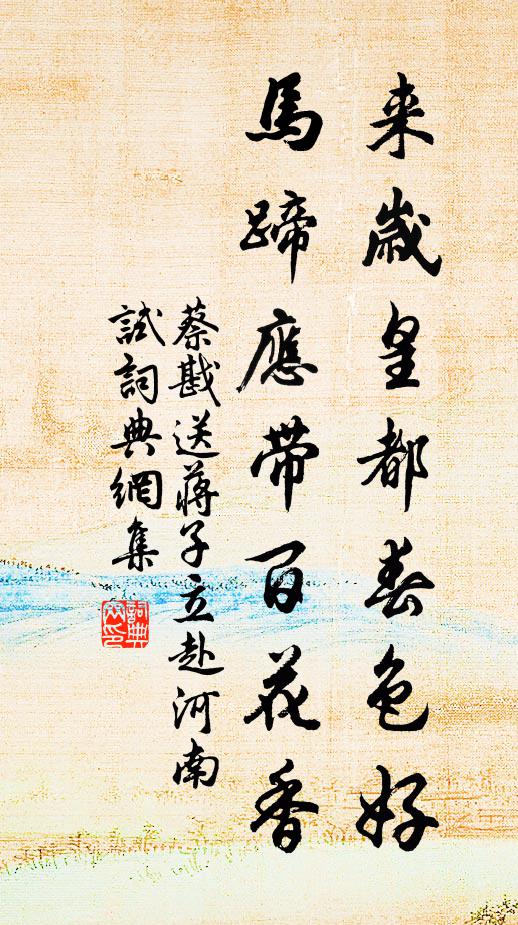 来歲皇都春色好
馬蹄應帶百花香
蔡戡送蔣子立赴河南
試詞典網集
詞典